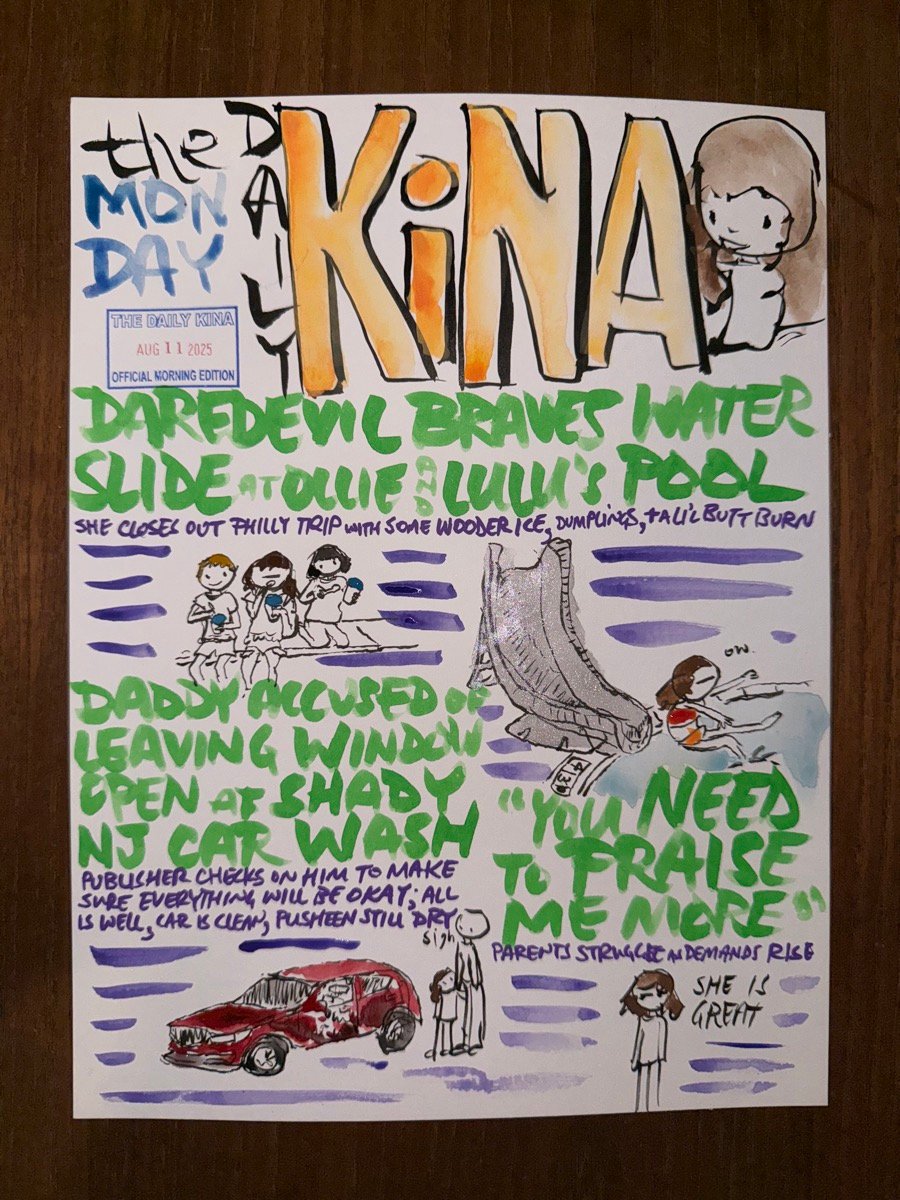 the
MON
DAY
DAILY
KiNA
THE DAILY KINA
AUG 11 2025
OFFICIAL MORNING EDITION
DAREDEVIL BRAVES WATER
SLIDE AT OLLIE AND LULU'S POOL
SHE CLOSES OUT PHILLY TRIP WITH SOME WOODER ICE, DUMPLINGS, + A LI'L BUTT BURN
ow.
DADDY ACCUSED OF
LEAVING WINDOW
OPEN AT SHADY
NJ CAR WASH
PUBLISHER CHECKS ON HIM TO MAKE
SURE EVERYTHING WILL BE OKAY; ALL
IS WELL, CAR IS CLEAN, PUSHEEN STILL DRY
sigh
"YOU NEED
TO PRAISE
ME MORE"
PARENTS STRUGGLE AS DEMANDS RISE
SHE IS
GREAT